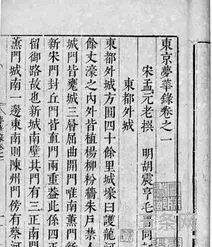 東京夢華錄卷之一
宋孟元老撰　明胡震亨毛晉同訂
東都外城
東都外城方圓四十餘里城壕曰護龍河闊十
餘丈濠之內外皆植楊柳粉牆朱戶禁人往來
城門皆甕城三層屈曲開門唯南薰門
新宋門封丘門皆直門兩重蓋此係四正門皆
留御路故也新城南壁其門有三正南門曰南
薰門城南一邊東南則陳州門傍有蔡河